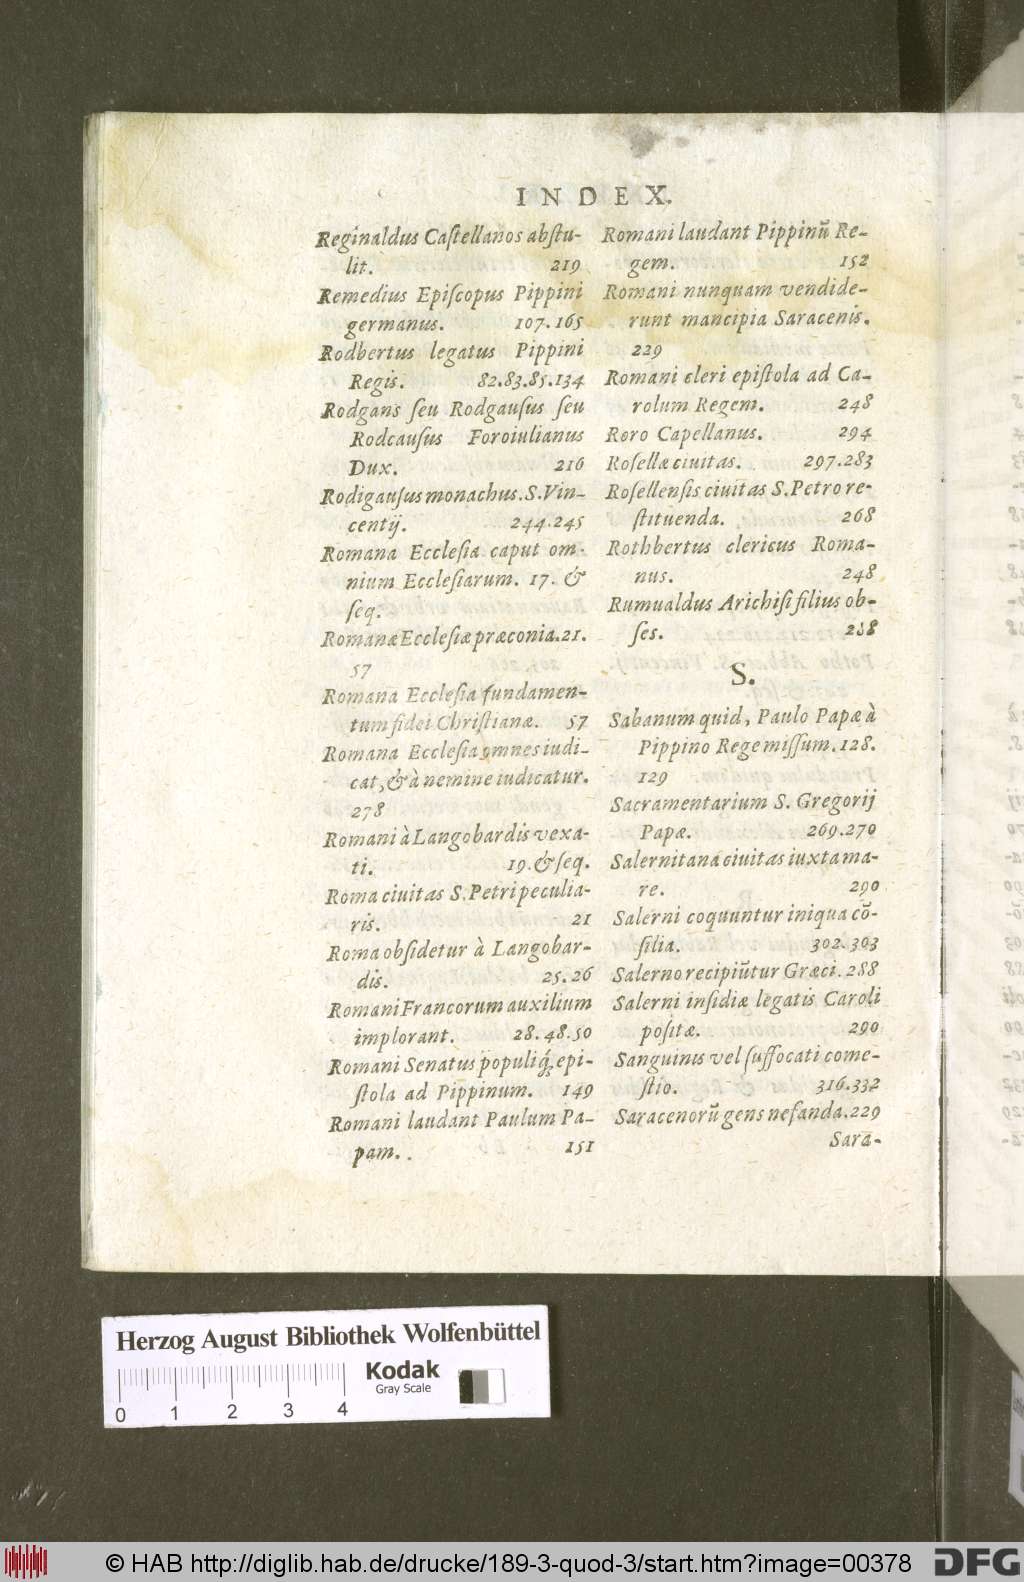 INDEX.
Reginaldus Caſtellanos abſtu-
lit. 219
Remedius Epiſcopus Pippini
germanus. 107.165
Rodbertus legatus Pippini
Regis. 82.83.85.134
Rodgans ſeu Rodgauſus ſeu
Rodcauſus Foroiulianus
Dux. 216
Rodigauſus monachus. S. Vin-
centij. 244.245
Romana Eccleſia caput om-
nium Eccleſiarum. 17. &
ſeq.
Romanæ Eccleſiæ præconia. 21.
57
Romana Eccleſia fundamen-
tum fidei Chriſtianæ. 57
Romana Eccleſia omnes iudi-
cat, & à nemine iudicatur.
278
Romani à Langobardis vexa-
ti. 19. & ſeq.
Roma ciuitas S. Petri peculia-
ris. 21
Roma obſidetur à Langobar-
dis. 25.26
Romani Francorum auxilium
implorant. 28.48.50
Romani Senatus populiq́; epi-
ſtola ad Pippinum. 149
Romani laudant Paulum Pa-
pam. 151
Romani laudant Pippinũ Re-
gem. 152
Romani nunquam vendide-
runt mancipia Saracenis.
229
Romani cleri epiſtola ad Ca-
rolum Regem. 248
Roro Capellanus. 294
Roſellæ ciuitas. 297.283
Roſellenſis ciuitas S. Petro re-
ſtituenda. 268
Rothbertus clericus Roma-
nus. 248
Rumualdus Arichiſi filius ob-
ſes. 288
S.
Sabanum quid, Paulo Papæ à
Pippino Rege miſſum. 128.
129
Sacramentarium S. Gregorij
Papæ. 269.270
Salernitana ciuitas iuxta ma-
re. 290
Salerni coquuntur iniqua cõ-
ſilia. 302.303
Salerno recipiũtur Græci. 288
Salerni inſidiæ legatis Caroli
poſitæ. 290
Sanguinis vel ſuffocati come-
ſtio. 316.332
Saracenorũ gens nefanda. 229
Sara-
Herzog August Bibliothek Wolfenbüttel
Kodak
Gray Scale
0 1 2 3 4
© HAB http://diglib.hab.de/drucke/189-3-quod-3/start.htm?image=00378
DFG